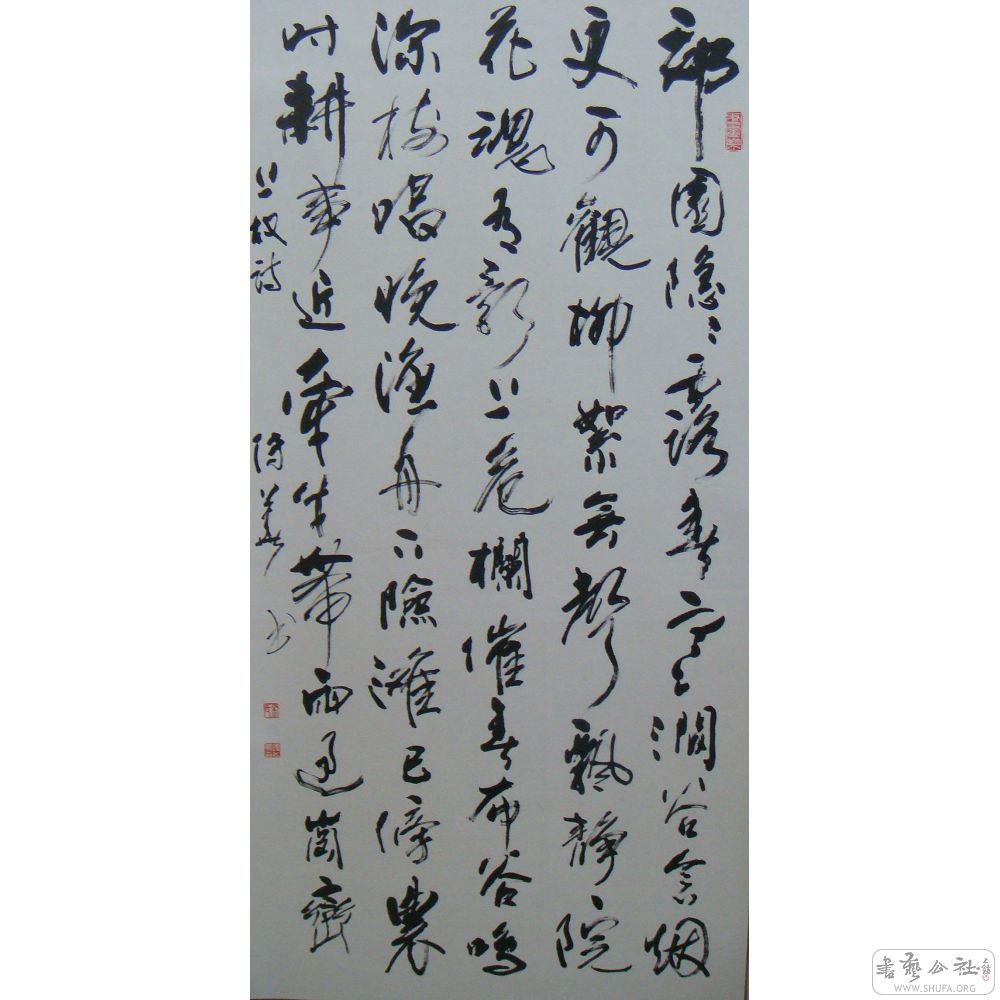 郊園隱〻露春寒澗谷含烟
更可觀柳絮無聲飄靜院
花魂有影上危欄催春布谷鳴
深樹唱晚漁舟下險灘已傍農
时耕事近牽牛帶雨過崗巒
詩 书
書藝公社
WWW.SHUFA.ORG